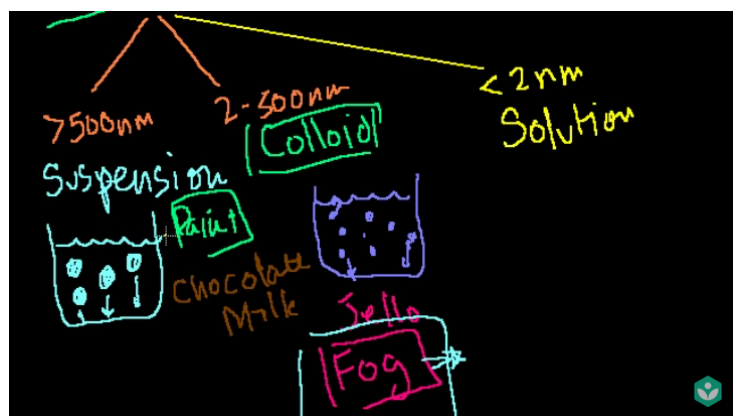 >500nm
2-500nm
<2nm
Suspension
Colloid
Solution
Paint
Chocolate
Milk
Jello
Fog